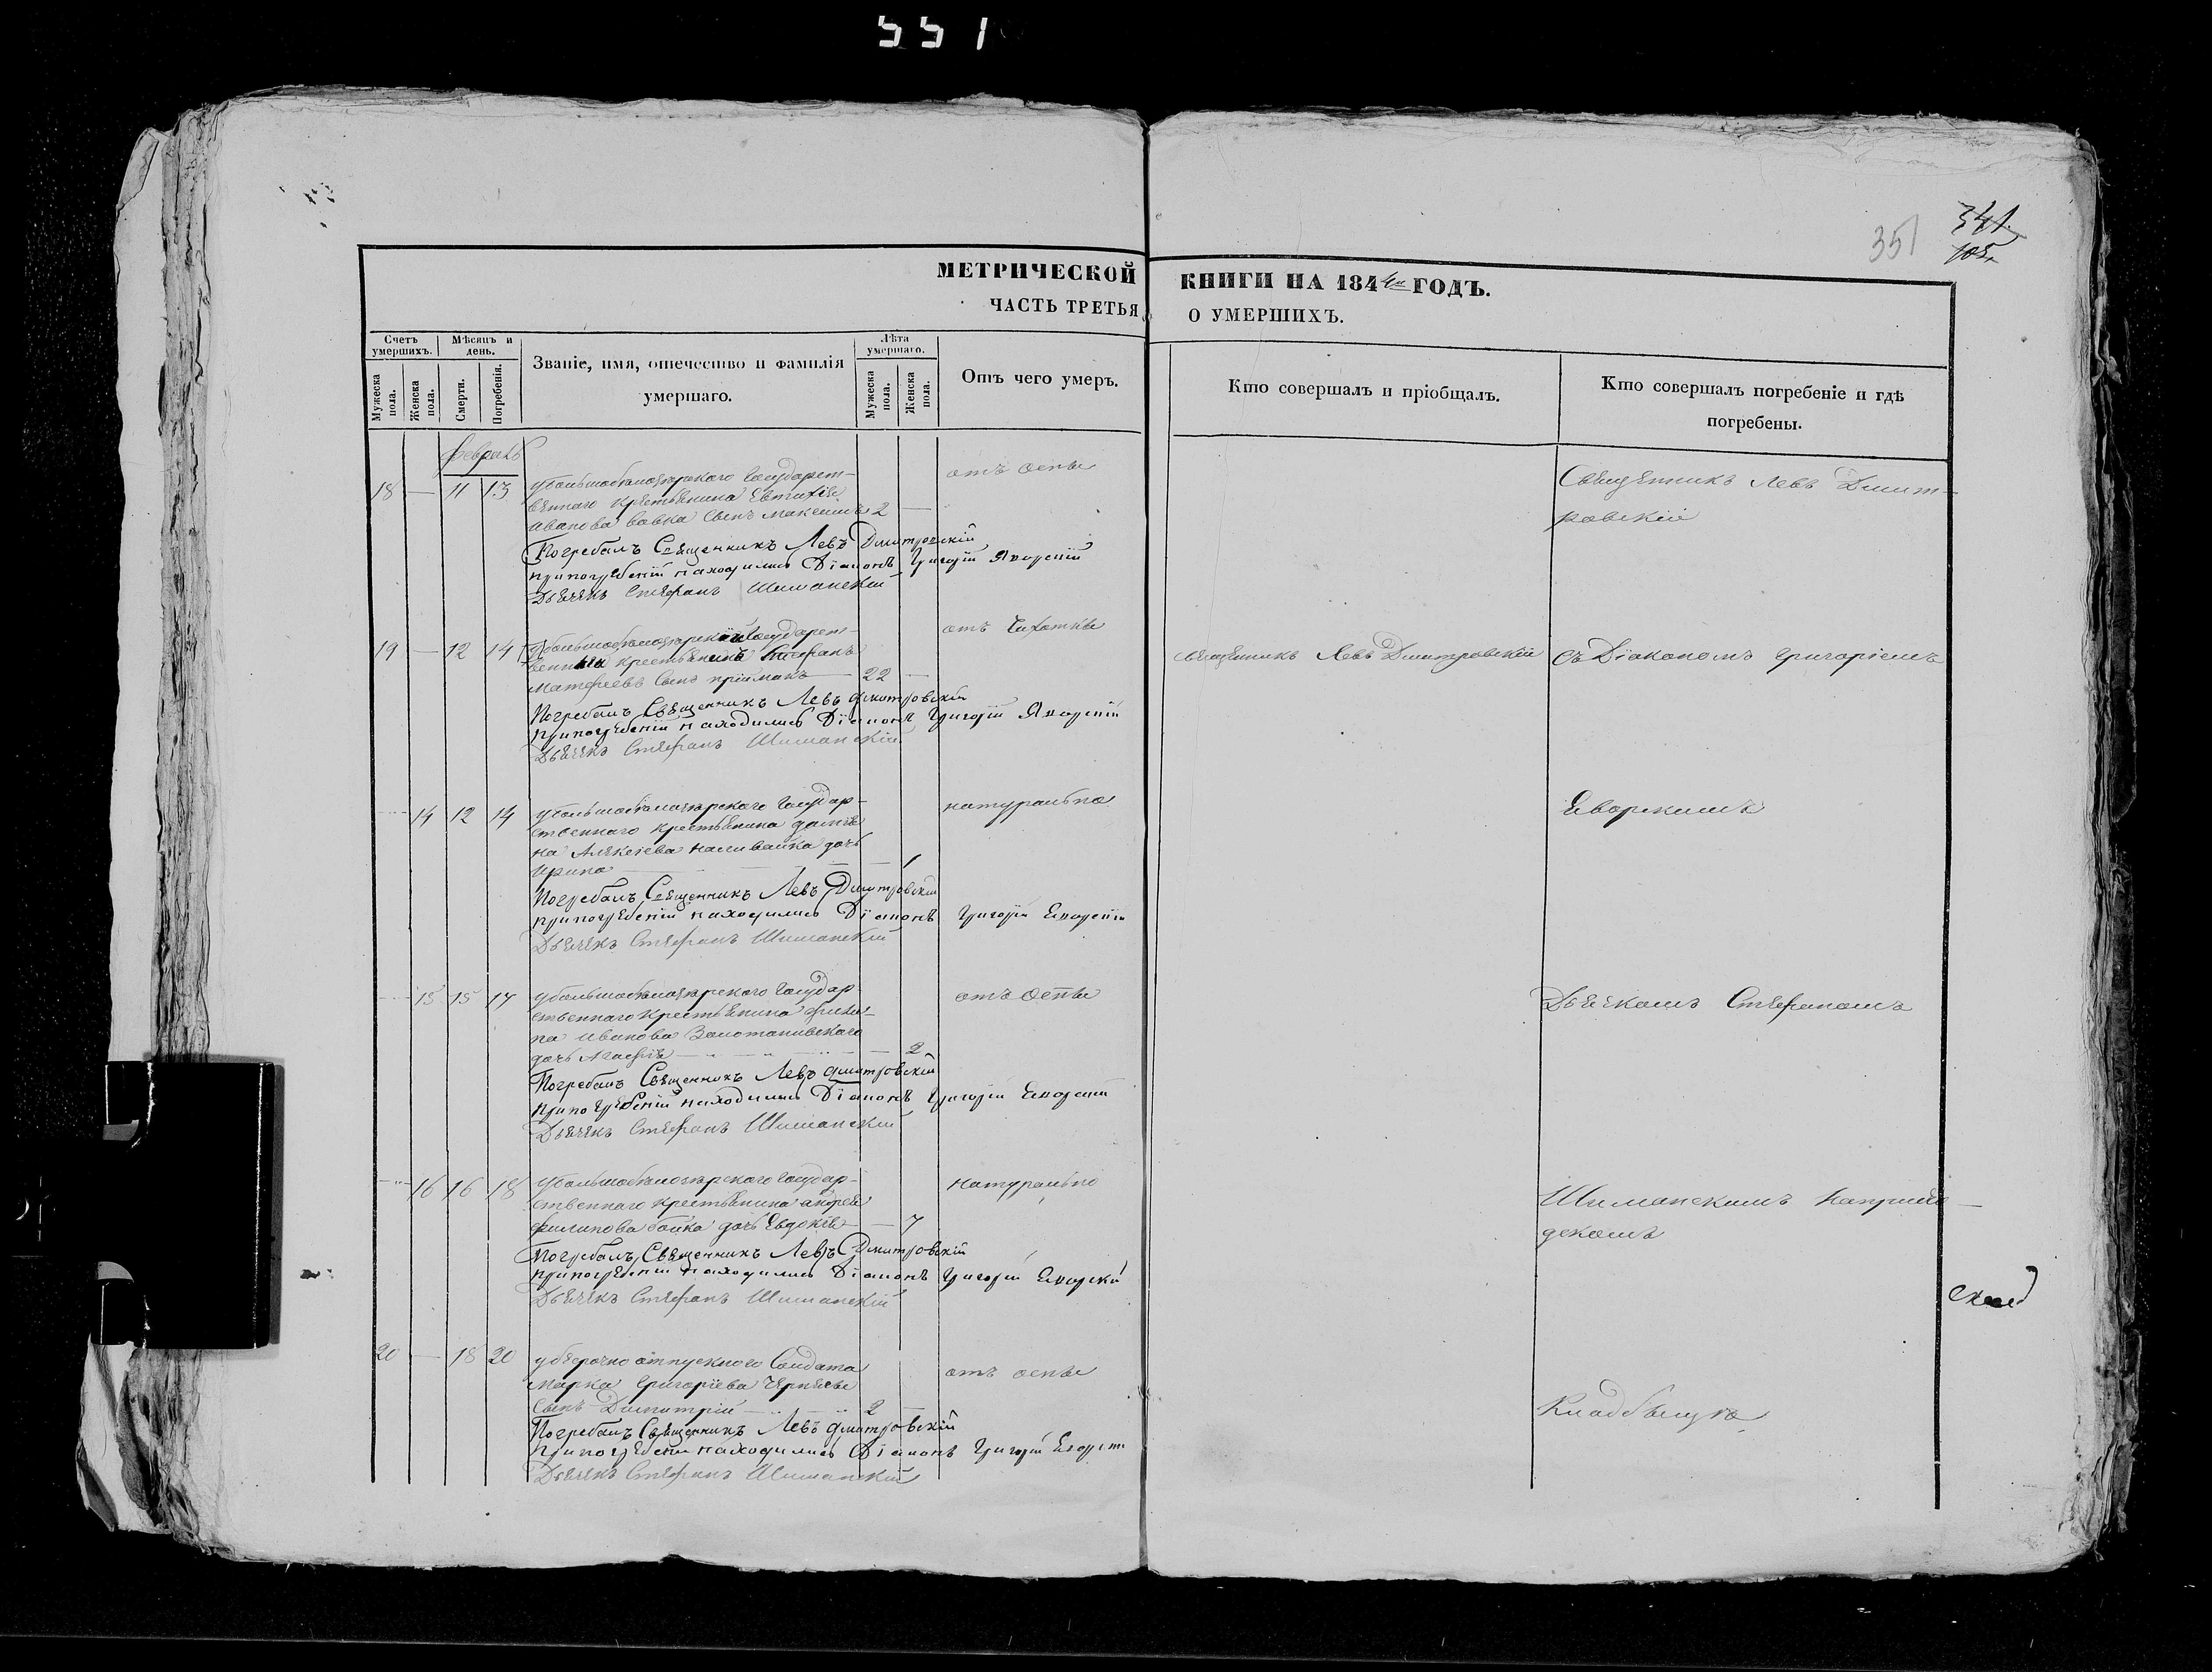 551
351
341.
105.
МЕТРИЧЕСКОЙ КНИГИ НА 1844 ГОДЪ.
ЧАСТЬ ТРЕТЬЯ, О УМЕРШИХЪ.
Счетъ умершихъ.
Мужеска пола.
Женска пола.
Мѣсяцъ и день.
Смерти.
Погребенія.
Званіе, имя, отечество и фамилія умершаго.
Лѣта умершаго.
Мужеска пола.
Женска пола.
Отъ чего умеръ.
Кто совершалъ и пріобщалъ.
Кто совершалъ погребеніе и гдѣ погребены.
февраль
18 — 11 13
Государст-
веннаго крестьянина Евтихія
Иванова Вовка сынъ Максимъ 2 —
отъ оспы
Священникъ Левъ Дмит-
ровскій
Погребалъ Священникъ Левъ Дмитровскій
при погребеніи находились Діаконъ Григорій Яворскій
Дьячекъ Стефанъ Шиманскій
19 — 12 14
Государст-
венный крестьянинъ Стефанъ
Матфеевъ сынъ Пріймакъ — 22 —
отъ чахотки
Священникъ Левъ Дмитровскій
Съ Діакономъ Григоріемъ
Погребалъ Священникъ Левъ Дмитровскій
при погребеніи находились Діаконъ Григорій Яворскій
Дьячекъ Стефанъ Шиманскій
— 14 12 14
Государ-
ственнаго крестьянина
на Алексіева Наливайка дочь
Ирина — 1
натурально
Еворскимъ
Погребалъ Священникъ Левъ Дмитровскій
при погребеніи находились Діаконъ Григорій Еворскій
Дьячекъ Стефанъ Шиманскій
— 15 15 17
Государ-
ственнаго крестьянина Филип-
па Иванова
дочь Агафія — 2
отъ оспы
Дьячкомъ Стефаномъ
Погребалъ Священникъ Левъ Дмитровскій
при погребеніи находились Діаконъ Григорій Еворскій
Дьячекъ Стефанъ Шиманскій
— 16 16 18
Государ-
ственнаго крестьянина Андрея
Филипова Бойка дочь Евдокія — 7
натурально
Шиманскимъ на приход-
скомъ
Погребалъ Священникъ Левъ Дмитровскій
при погребеніи находились Діаконъ Григорій Еворскій
Дьячекъ Стефанъ Шиманскій
20 — 18 20
отпускного Солдата
Марка Григоріева
сынъ Димитрій — 2 —
отъ оспы
Кладбищѣ
Погребалъ Священникъ Левъ Дмитровскій
при погребеніи находились Діаконъ Григорій
Дьячекъ Стефанъ Шиманскій